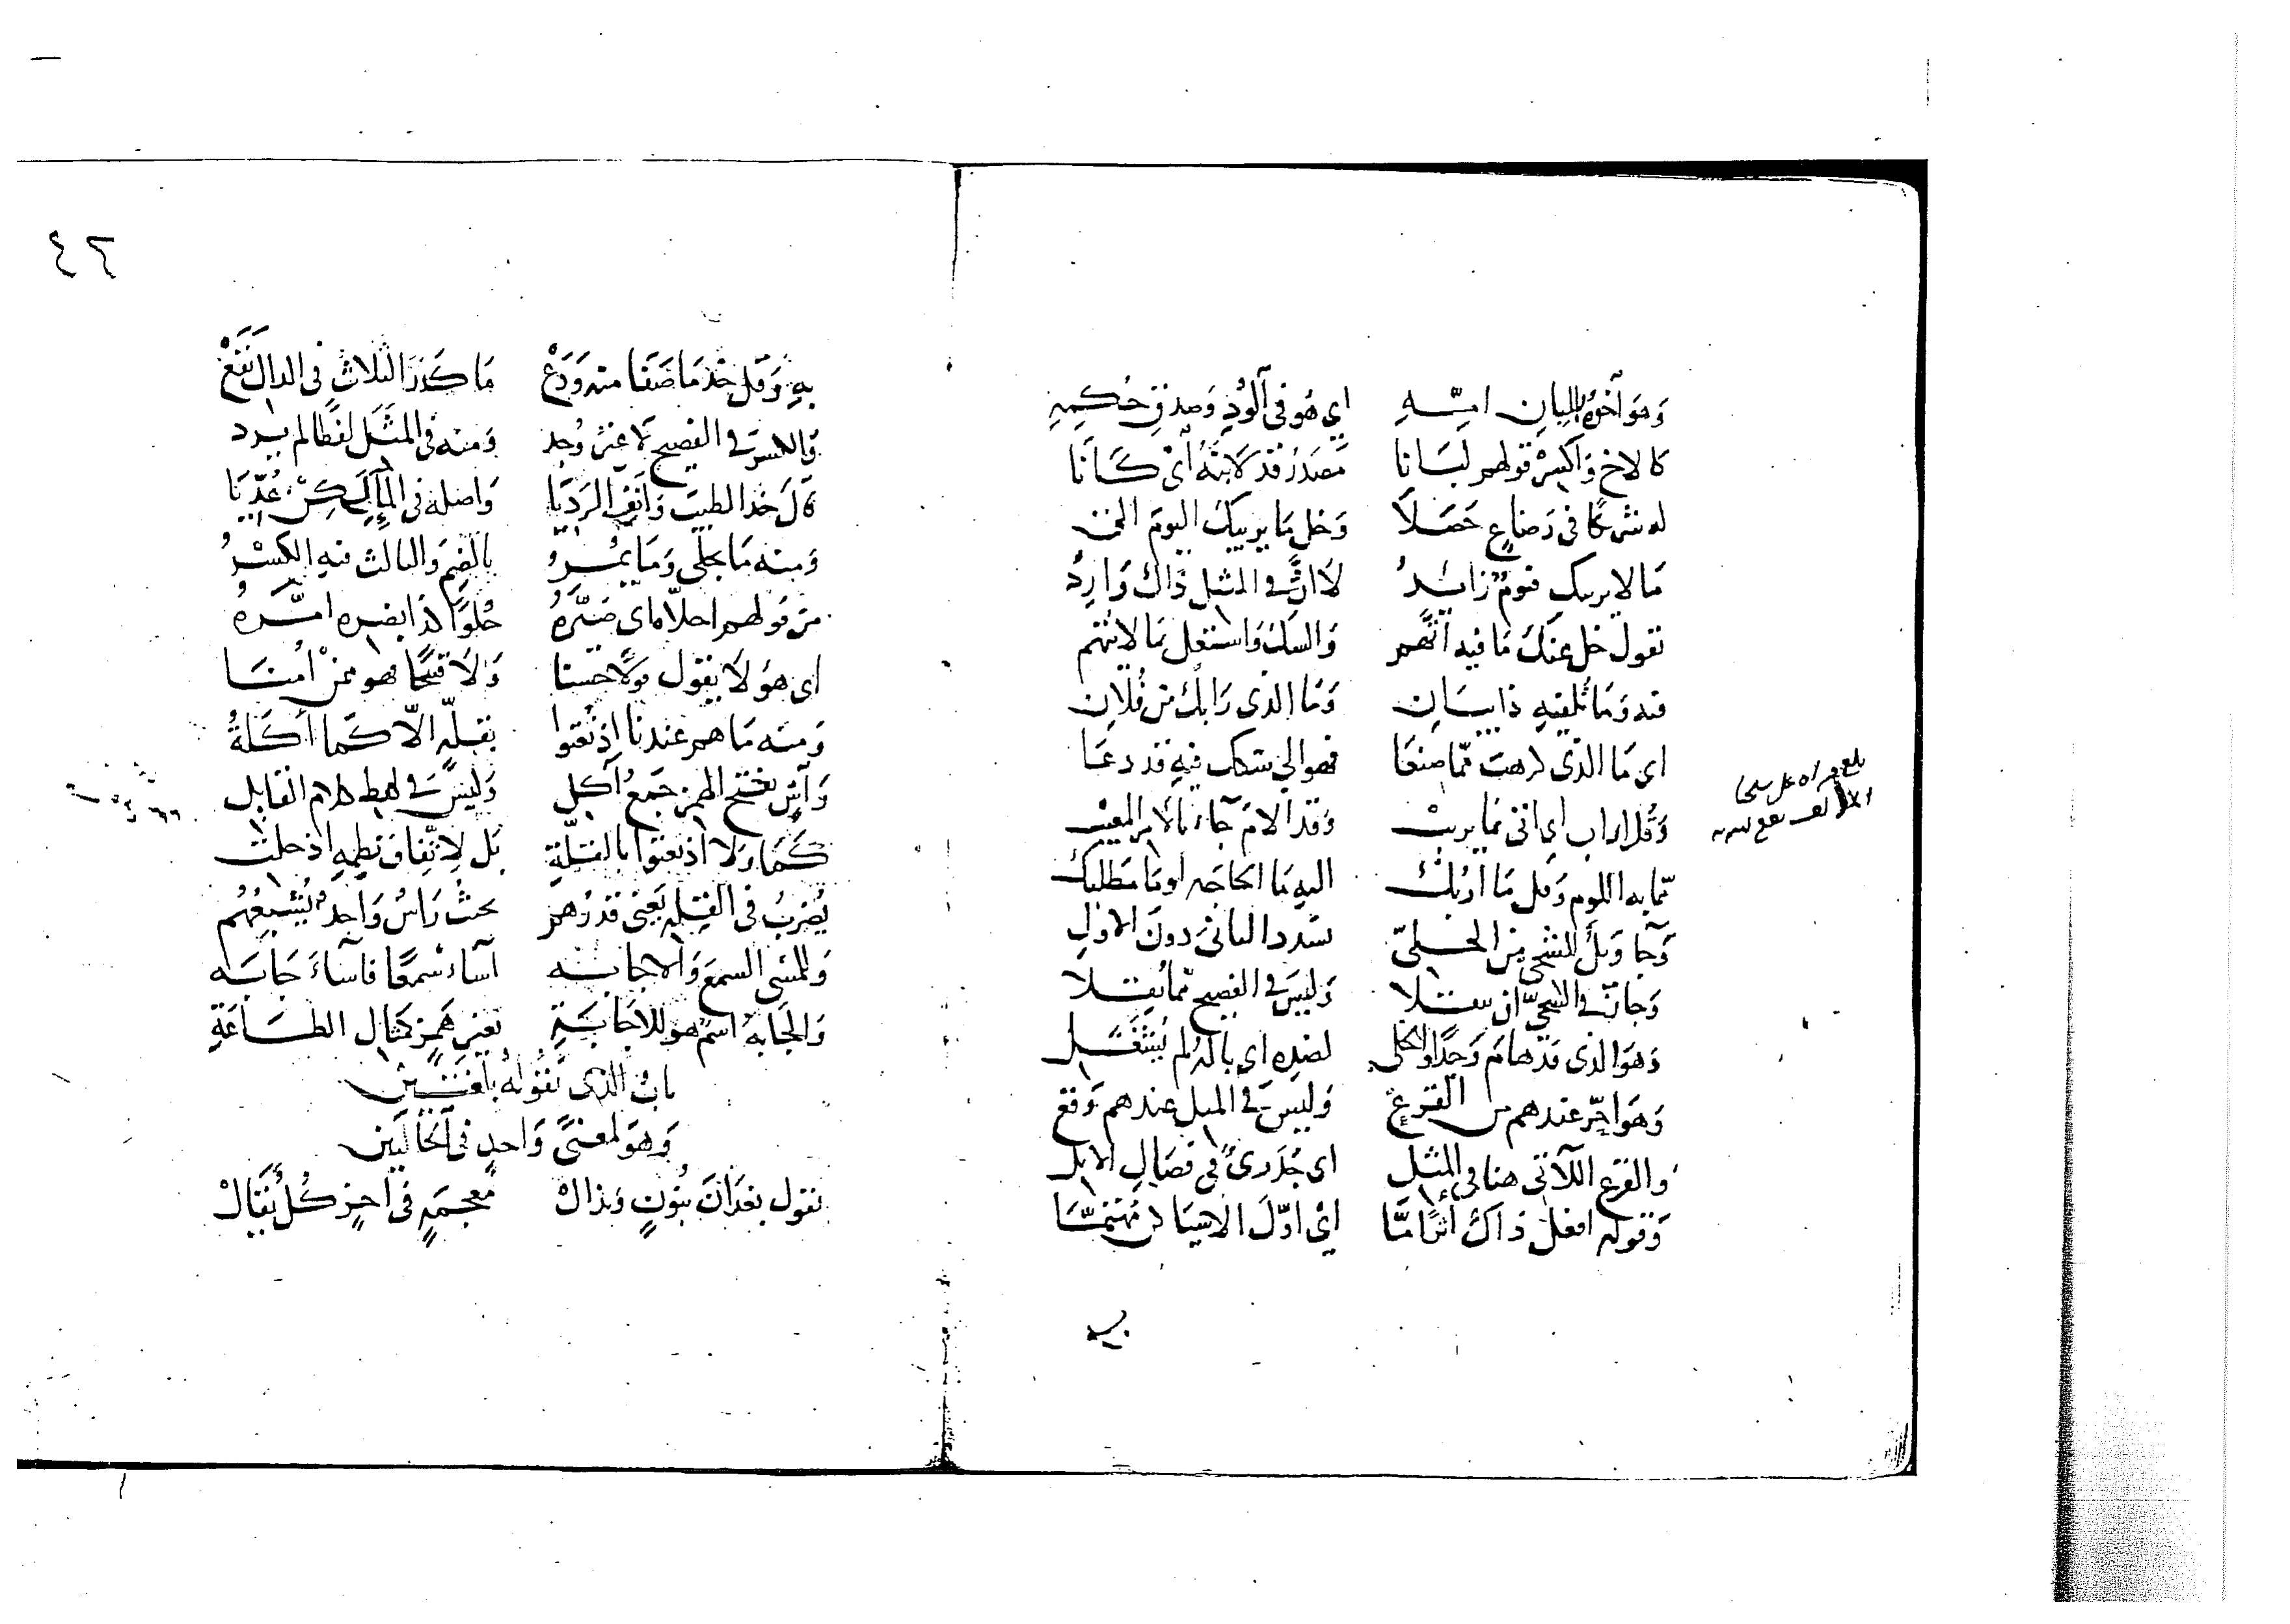 وَهوَ أخوُه بِلِبانِ امّــهِ اي هُو في الوُدِ وَصدقِ حُكمِهِ
كالاخ وَاكسِرْ قولهم لِبَانا مَصدَرُ قد لابَنَهُ أيْ كَانَا
له شركًا في رَضاعٍ حَصَلَا وَخل مَا يريبك اليومَ الى
مَا لا يريبك فنومٌ زايــدُ لَا انَّ في المثل ذاك وَارِدُ
تقول خل عنك مَا فيه اتُّهم وَاسلك وَاستعمل بمَا لا يتّهم
فيه وَمَا تُلفيهِ ذا بيَــانِ وَمَا الذى رَابك من فلانِ
اى مَا الذى كرهت ممّا صنعَا فهو الى شكك فيه قد دعَا
وَقُل اراب اى اتى بمَا يريبْ وَقد الامَ جاءَ بالامر المعيبْ
ممّا به اللوم وَقل مَا اربُكْ اليه مَا الحاجه او مَا مَطلبُكْ
وَجا وَيلٌ للشجى من الخــلىّ بشدد الثانى دونَ الاولِ
وَجازَ في الشجىّ ان يثقــلا وَليسَ في الفصيح ممّا نُقــلا
وَهوَ الذى قد هامَ وَجدًا والخلى لضدِهِ اى بالهٌ لم يُشغَــلِ
وَهوَ احرّ عندهم من القَرَعِ وَليسَ في المثل عندهم وَقع
والقرع اللآتى هنا في المثــل اى جُدَرىٌّ في فصَالِ الابل
وَقوله افعل ذاكَ اثرًا مَّا اىْ اوّلَ الاشيَاء كن مُهتمَّــا
بلغ قراءه على شيخنا
المؤلف نفع به
٤٢
بهِ وَقل خذ مَا صَفَا منه وَدَعْ مَا كَدرَ الثلاث في الدال تقعْ
وَالكسر في الفصيح لا غيرُ وُجد وَمنه في المثَل لفظًا لم يــرد
قالَ خذ الطيبَ وَانفِ الرَديّا وَاصله في المآكِل عُدّيَا
وَمنه مَا يحلى وَمَا يمُــرُّ بالضم وَالثالث فيهِ الكسْرُ
من قولهم احلاهُ اى صيّرَهُ حُلوًا كذا بضده امــرَّهُ
اى هوَ لا يقول قولًا حسنا وَلَا قبيحًا فهو ممنْ أمنَــا
وَمنه مَا هم عندنَا إذ نُعتوا بقلّةٍ الّا كَمَا أكَلَةُ
رَأسٍ بفتح الهمز جَمعُ آكل وَليسَ في لفظ كلام القايل
كَمَا وَلا اذ نعتوا بالقلّةِ بَل لِاتّفاق نظمِهِ اذ حلّت
يُضربُ في القلّه يَعنى قدرُهم بحثُ رَاسٌ وَاحدٌ يُشبعُهم
وَلمُسى السمعَ وَالاجابــه اَساءَ سَمعًا فاَساءَ جَابَــه
وَالجَابَة اسمٌ هوَ للاجَابَــةِ بغير هَمزٍ كمثال الطــاعَةِ
بابُ الذى نقُولهُ بلغتــينِ
وَهوَ لمعنىً وَاحدٍ في الحَالَين
نقول بغدَانَ بنُونٍ وَبذالْ معجمَةٍ في اخرٍ كُلٌ يُقَالْ